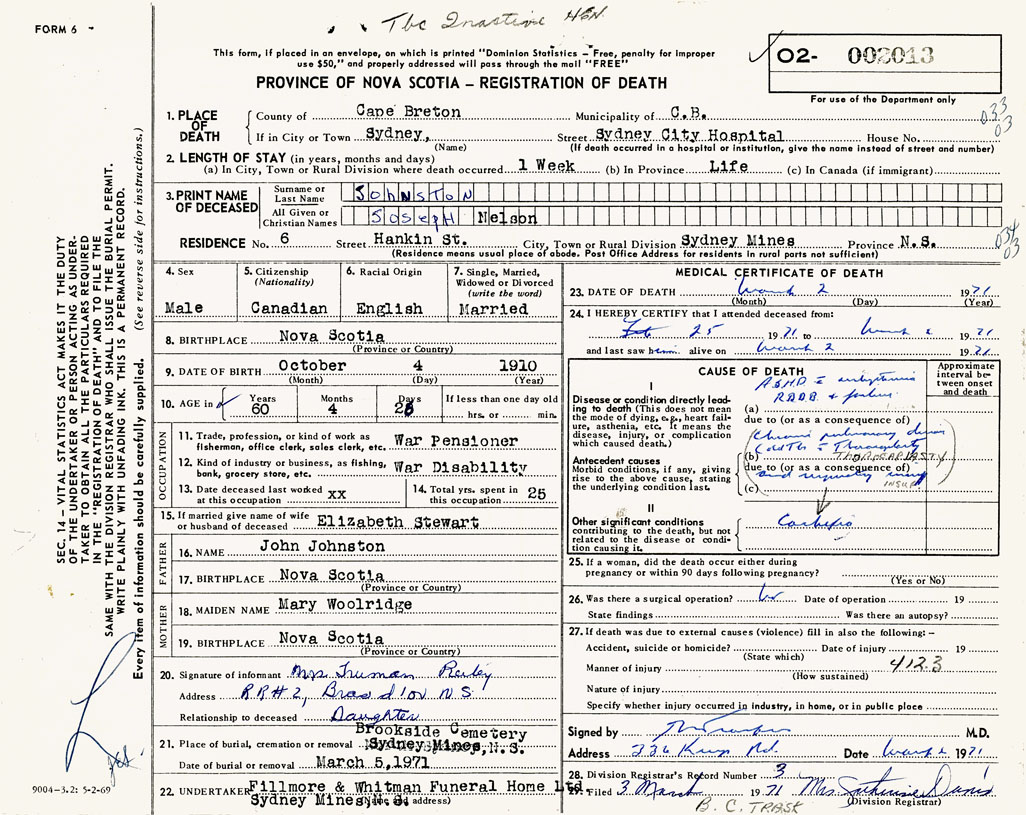 FORM 6
Tbc Inactive HSN.
This form, if placed in an envelope, on which is printed "Dominion Statistics – Free, penalty for improper
use $50," and properly addressed will pass through the mail "FREE"
PROVINCE OF NOVA SCOTIA – REGISTRATION OF DEATH
O2- 002013
For use of the Department only
1. PLACE OF DEATH
County of Cape Breton Municipality of C.B.
033
03
If in City or Town Sydney, Street Sydney City Hospital House No.
(Name) (If death occurred in a hospital or institution, give the name instead of street and number)
2. LENGTH OF STAY (in years, months and days)
(a) In City, Town or Rural Division where death occurred 1 Week (b) In Province Life (c) In Canada (if immigrant)
3. PRINT NAME OF DECEASED
Surname or Last Name JOHNSTON
All Given or Christian Names JOSEPH Nelson
RESIDENCE No. 6 Street Hankin St. City, Town or Rural Division Sydney Mines Province N.S.
034
03
(Residence means usual place of abode. Post Office Address for residents in rural parts not sufficient)
4. Sex
Male
5. Citizenship
(Nationality)
Canadian
6. Racial Origin
English
7. Single, Married,
Widowed or Divorced
(write the word)
Married
8. BIRTHPLACE Nova Scotia
(Province or Country)
9. DATE OF BIRTH October 4 1910
(Month) (Day) (Year)
10. AGE in Years Months Days If less than one day old
60 4 28 hrs. or min.
OCCUPATION
11. Trade, profession, or kind of work as
fisherman, office clerk, sales clerk, etc. War Pensioner
12. Kind of industry or business, as fishing,
bank, grocery store, etc. War Disability
13. Date deceased last worked
at this occupation xx
14. Total yrs. spent in
this occupation 25
15. If married give name of wife
or husband of deceased Elizabeth Stewart
FATHER
16. NAME John Johnston
17. BIRTHPLACE Nova Scotia
(Province or Country)
MOTHER
18. MAIDEN NAME Mary Woolridge
19. BIRTHPLACE Nova Scotia
(Province or Country)
20. Signature of informant Mrs Truman
Address RR#2, N S
Relationship to deceased Daughter
Brookside Cemetery
21. Place of burial, cremation or removal Sydney Mines, N.S.
Date of burial or removal March 5, 1971
22. UNDERTAKER Fillmore & Whitman Funeral Home Ltd.
Sydney Mines, N.S.
(Name and address)
MEDICAL CERTIFICATE OF DEATH
23. DATE OF DEATH March 2 1971
(Month) (Day) (Year)
24. I HEREBY CERTIFY that I attended deceased from:
Feb 25 1971 to March 2 1971
and last saw him alive on March 2 1971
CAUSE OF DEATH
Approximate
interval be-
tween onset
and death
I
ASHD
RBBB
Disease or condition directly lead-
ing to death (This does not
mean the mode of dying, e.g., heart fail-
ure, asthenia, etc. It means the
disease, injury, or complication
which caused death.)
(a)
due to (or as a consequence of)
Chronic pulmonary
Old TB Thoracoplasty
(b) THORACOPLASTY
Antecedent causes
Morbid conditions, if any, giving
rise to the above cause, stating
the underlying condition last.
due to (or as a consequence of)
and
INSUF
(c)
II
Other significant conditions
contributing to the death, but not
related to the disease or condi-
tion causing it.
25. If a woman, did the death occur either during
pregnancy or within 90 days following pregnancy?
(Yes or No)
26. Was there a surgical operation? No Date of operation 19
State findings Was there an autopsy?
27. If death was due to external causes (violence) fill in also the following:–
Accident, suicide or homicide? Date of injury 19
(State which)
Manner of injury 412.3
(How sustained)
Nature of injury
Specify whether injury occurred in industry, in home, or in public place
Signed by M.D.
Address 336 Kings Rd. Date March 2 1971
28. Division Registrar's Record Number 3
29. Filed 3 March 1971 Mrs. Davis
(Division Registrar)
B. C. TRASK
SEC. 14 – VITAL STATISTICS ACT MAKES IT THE DUTY
OF THE UNDERTAKER OR PERSON ACTING AS UNDER-
TAKER TO OBTAIN ALL THE PARTICULARS REQUIRED
IN THE "REGISTRATION OF DEATH" AND TO FILE THE
SAME WITH THE DIVISION REGISTRAR WHO SHALL ISSUE THE BURIAL PERMIT.
WRITE PLAINLY WITH UNFADING INK. THIS IS A PERMANENT RECORD.
Every item of information should be carefully supplied. (See reverse side for instructions.)
9004-3.2: 5-2-69